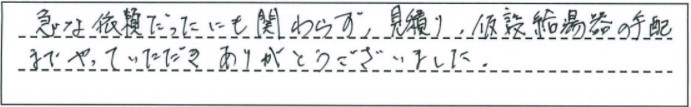 急な依頼だったにも関わらず、見積り、仮設給湯器の手配
までやっていただきありがとうございました。